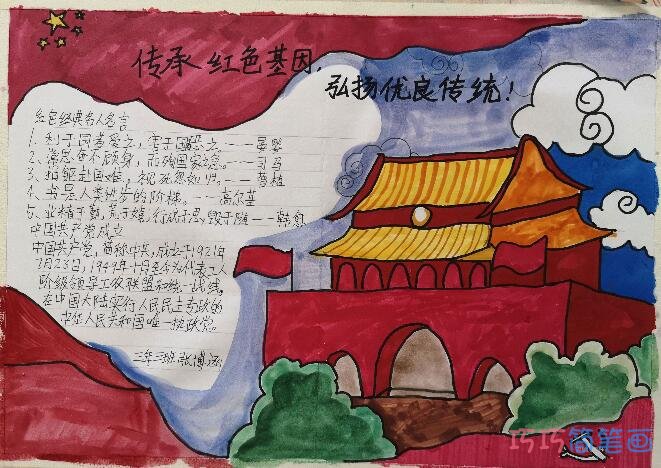 传承红色基因，
弘扬优良传统！
红色经典名人名言
1、利于国者爱之，害于国恶之——晏婴
2、常思奋不顾身，而殉国家之急。——司马
3、捐躯赴国难，视死忽如归。——曹植
4、书是人类进步的阶梯。——高尔基
5、业精于勤，荒于嬉，行成于思，毁于随——韩愈
中国共产党成立
中国共产党，简称中共，成立于1921年
7月23日，1949年10月至今为代表工人
阶级领导工农联盟和统一战线，
在中国大陆实行人民民主专政的
中华人民共和国唯一执政党。
三年三班 张博涵
巧巧简笔画